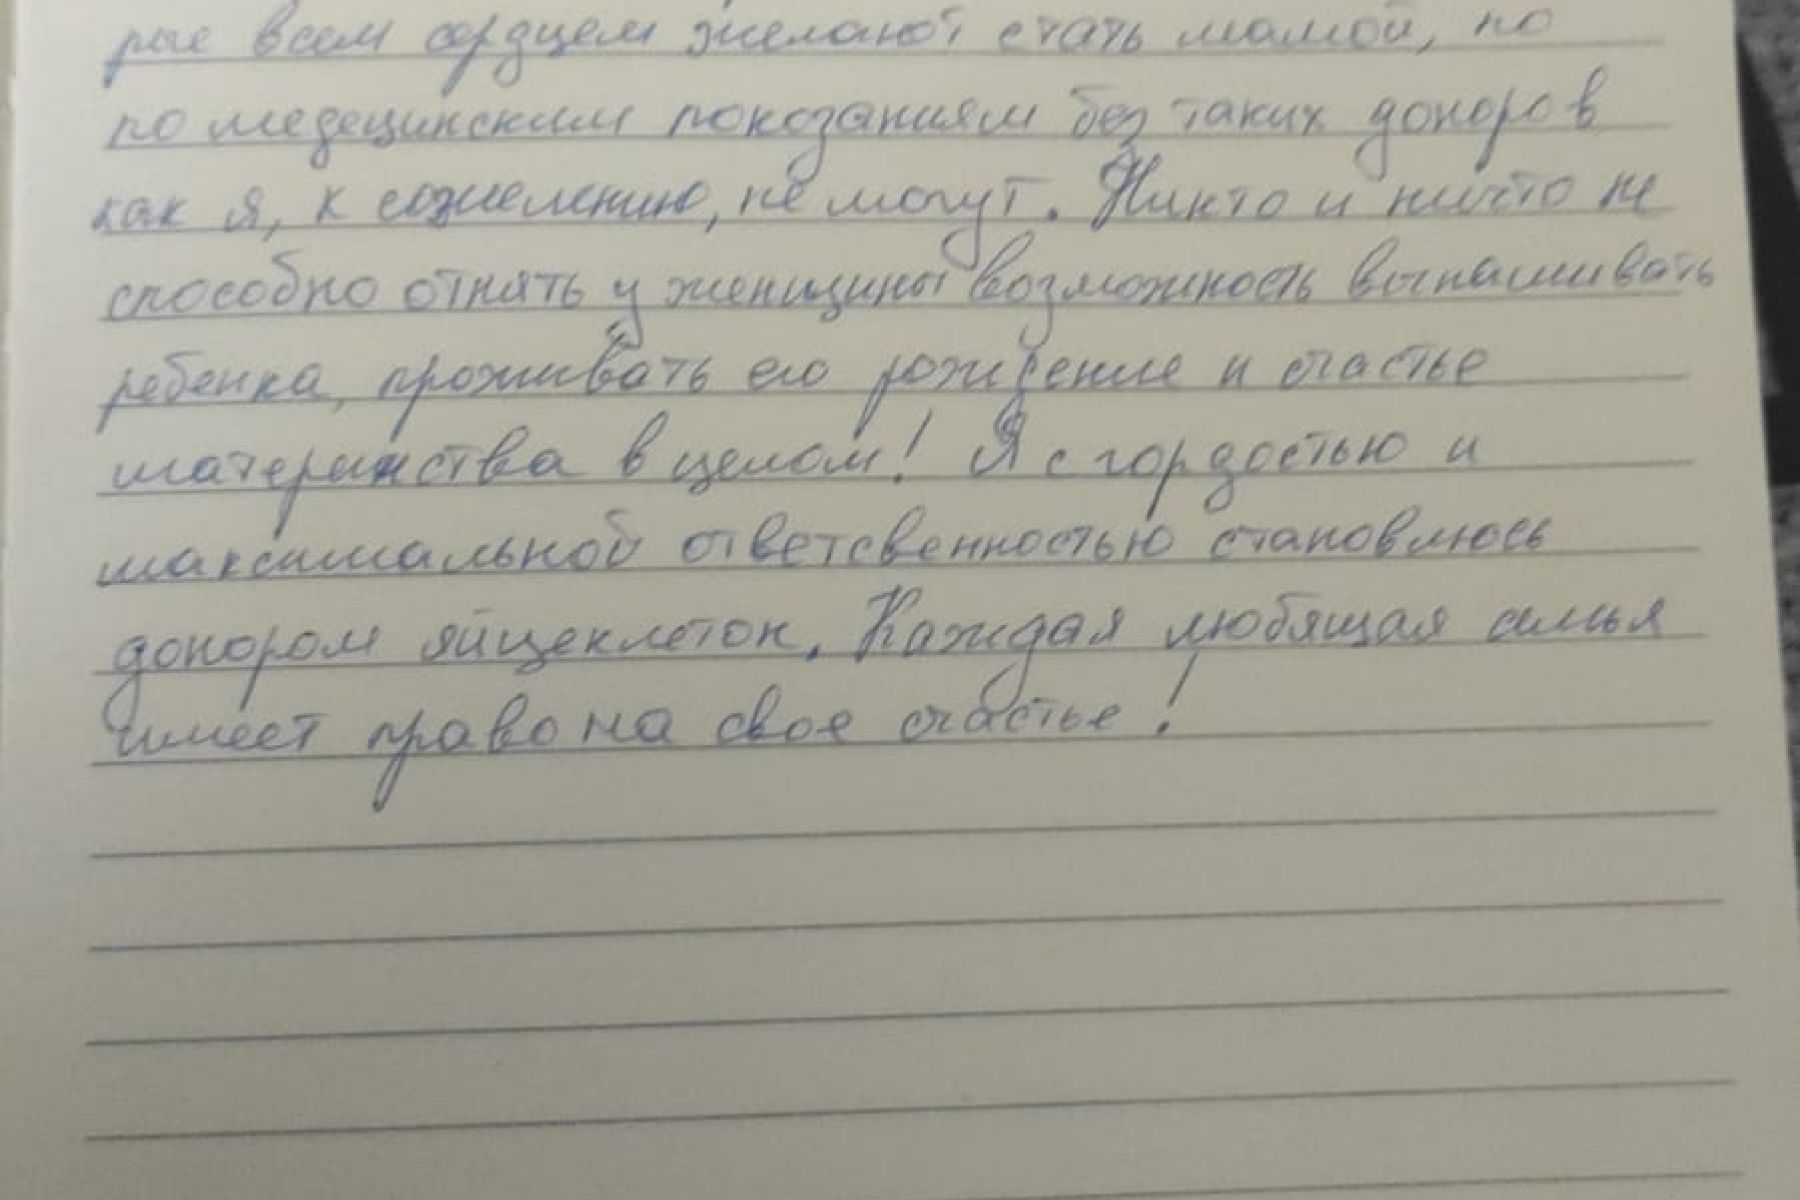 рые всем сердцем желают стать мамой, но
по медецинским показаниям без таких доноров
как я, к сожелению, не могут. Никто и ничто не
способно отнять у женщины возможность вынашивать
ребенка, проживать его рождение и счастье
материнства в целом! Я с гордостью и
максимальной ответсвенностью становлюсь
донором яйцеклеток. Каждая любящая семья
имеет право на свое счастье!